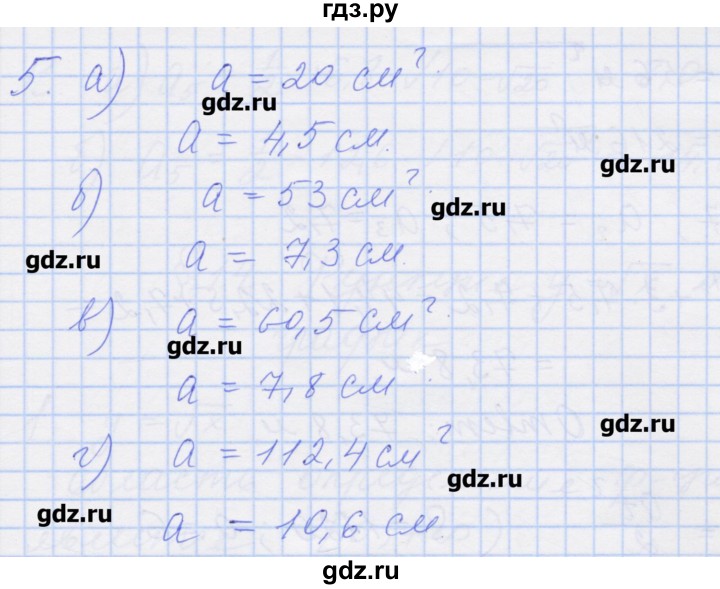 гдз.ру
5. а) a = 20 см².
gdz.ru
a = 4,5 см.
gdz.ru
б) a = 53 см².
gdz.ru
gdz.ru
a = 7,3 см.
в) a = 60,5 см².
gdz.ru
a = 7,8 см.
gdz.ru
г) a = 112,4 см²
gdz.ru
gdz.ru
a = 10,6 см.
gdz.ru